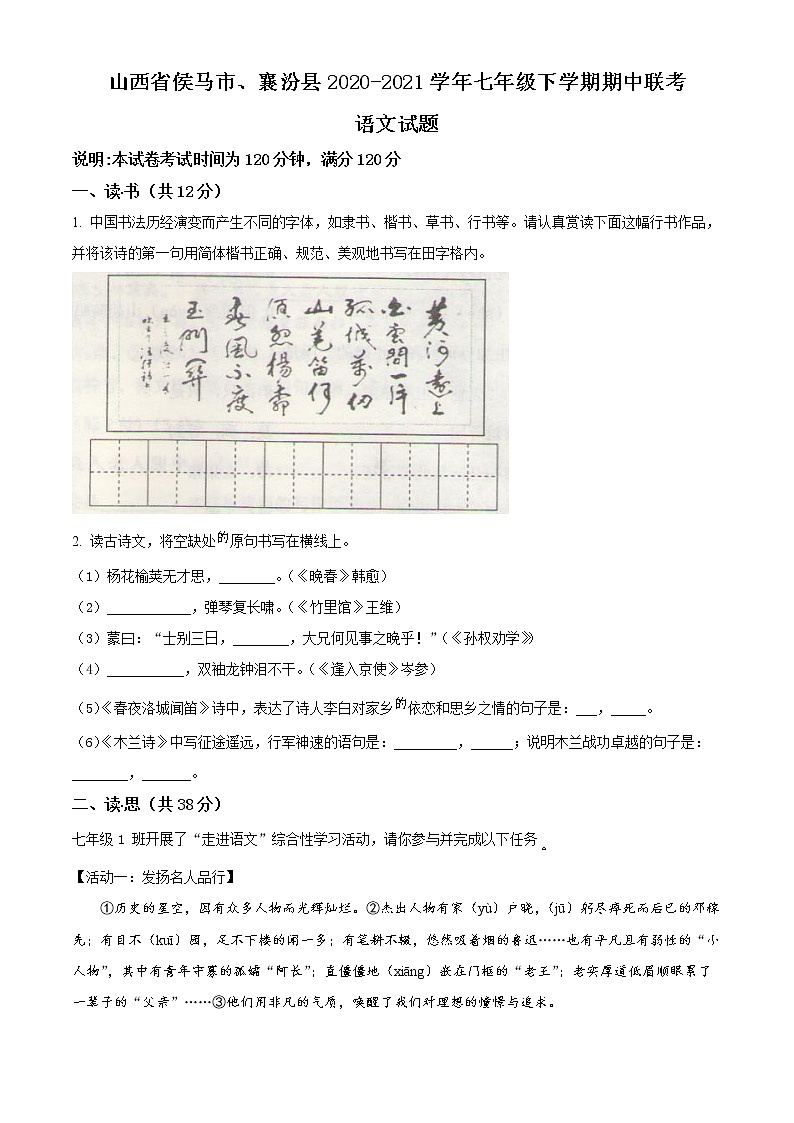 山西省侯马市、襄汾县2020-2021学年七年级下学期期中联考
语文试题
说明:本试卷考试时间为120分钟，满分120分
一、读·书（共12分）
1. 中国书法历经演变而产生不同的字体，如隶书、楷书、草书、行书等。请认真赏读下面这幅行书作品，
并将该诗的第一句用简体楷书正确、规范、美观地书写在田字格内。
黄河远上
白云間一片
孤城萬仞
山羌笛何
須怨楊柳
春風不度
玉門關
2. 读古诗文，将空缺处的原句书写在横线上。
（1）杨花榆荚无才思，________。（《晚春》韩愈）
（2）____________，弹琴复长啸。（《竹里馆》王维）
（3）蒙曰：“士别三日，________，大兄何见事之晚乎！”（《孙权劝学》）
（4）___________，双袖龙钟泪不干。（《逢入京使》岑参）
（5）《春夜洛城闻笛》诗中，表达了诗人李白对家乡的依恋和思乡之情的句子是：___，_____。
（6）《木兰诗》中写征途遥远，行军神速的语句是：_________，______；说明木兰战功卓越的句子是：
________，_______。
二、读·思（共38分）
七年级1 班开展了“走进语文”综合性学习活动，请你参与并完成以下任务。
【活动一：发扬名人品行】
①历史的星空，因有众多人物而光辉灿烂。②杰出人物有家（yù）户晓，（jū）躬尽瘁死而后已的邓稼
先；有目不（kuī）园，足不下楼的闻一多；有笔耕不辍，悠然吸着烟的鲁迅……也有平凡且有弱性的“小
人物”，其中有青年守寡的孤孀“阿长”；直僵僵地（xiāng）嵌在门框的“老王”；老实厚道低眉顺眼累了
一辈子的“父亲”……③他们用非凡的气质，唤醒了我们对理想的憧憬与追求。